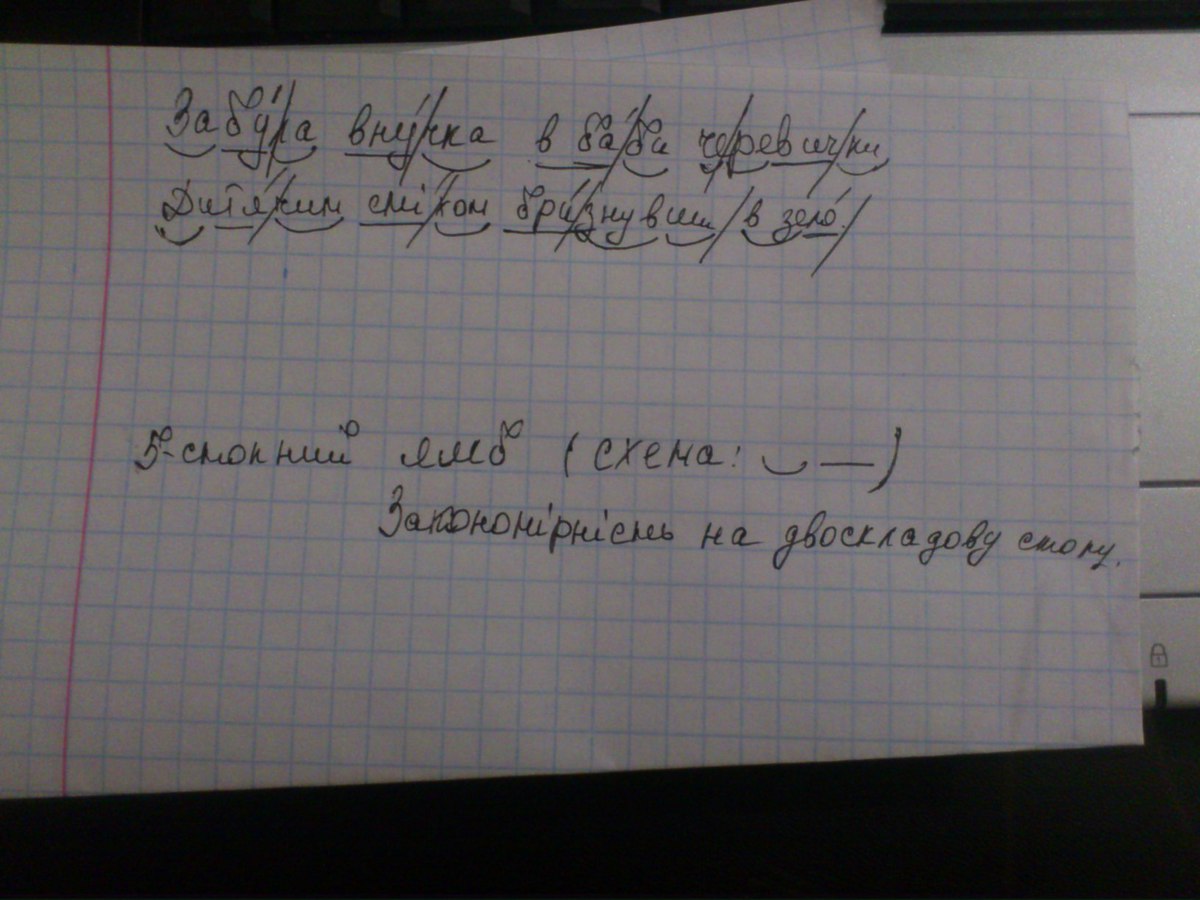 Забу́/ла вну́/чка в ба́/би че/реви́ч/ки
Дитя́/чим смі́/хом бри́/знувши/ в зело́./
5-стопний ямб (схема: ◡ —)
Закономірність на двоскладову стопу.